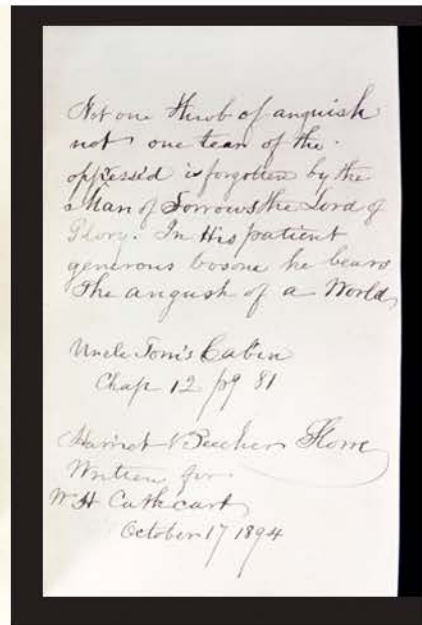 Not one throb of anguish
not one tear of the
oppress'd is forgotten by the
Man of Sorrows the Lord of
Glory. In His patient
generous bosom he bears
the angush of a World
Uncle Tom's Cabin
Chap 12 pg 81
Harriet Beecher Stowe
Written for
W H Cathcart
October 17 1894